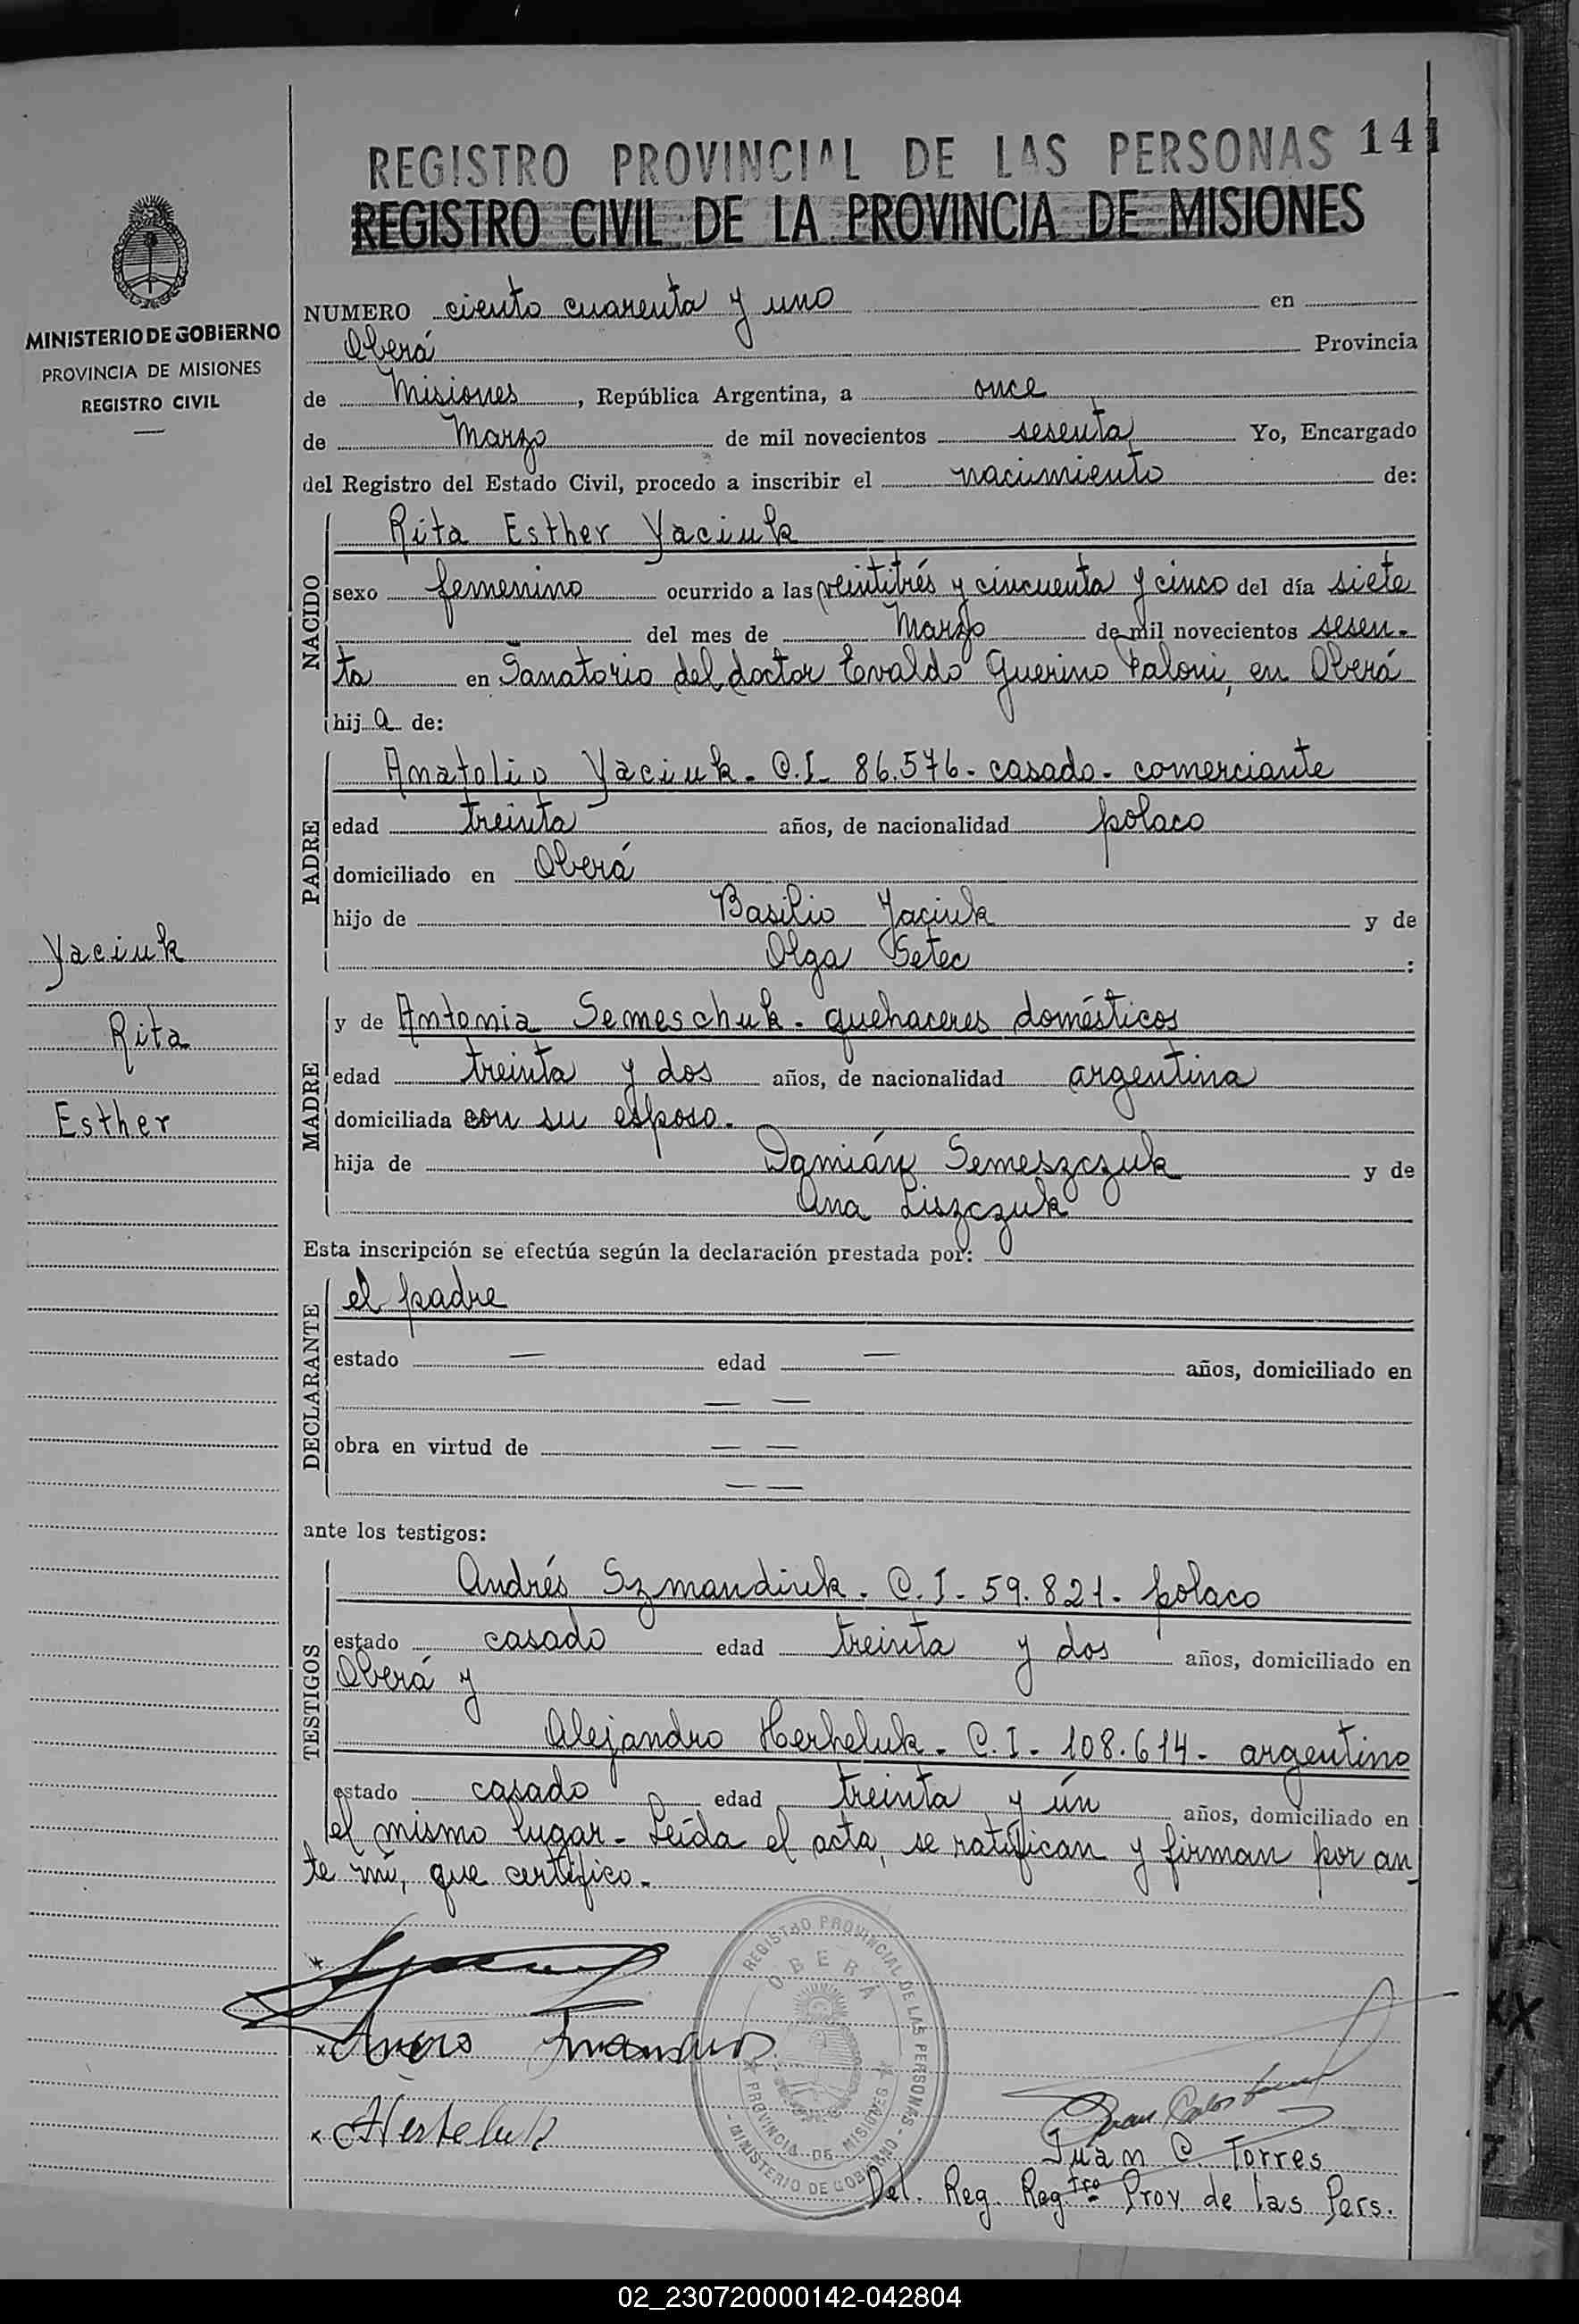 REGISTRO PROVINCIAL DE LAS PERSONAS 141
REGISTRO CIVIL DE LA PROVINCIA DE MISIONES
MINISTERIO DE GOBIERNO
PROVINCIA DE MISIONES
REGISTRO CIVIL
NUMERO ciento cuarenta y uno en
Oberá Provincia
de Misiones, República Argentina, a once
de Marzo de mil novecientos sesenta Yo, Encargado
del Registro del Estado Civil, procedo a inscribir el nacimiento de:
NACIDO
Rita Esther Yaciuk
sexo femenino ocurrido a las veintitrés y cincuenta y cinco del día siete
del mes de Marzo de mil novecientos sesen-
ta en Sanatorio del doctor Evaldo Guerino Paloni, en Oberá
hija de:
PADRE
Anatolio Yaciuk - C.I. 86.576 - casado - comerciante
edad treinta años, de nacionalidad polaco
domiciliado en Oberá
hijo de Basilio Yaciuk y de
Olga Setec :
Yaciuk
Rita
Esther
MADRE
y de Antonia Semeschuk - quehaceres domésticos
edad treinta y dos años, de nacionalidad argentina
domiciliada con su esposo.
hija de Damián Semeszczuk y de
Ana Liszczuk
Esta inscripción se efectúa según la declaración prestada por:
DECLARANTE
el padre
estado — edad — años, domiciliado en
— —
obra en virtud de — —
— —
ante los testigos:
TESTIGOS
Andrés Szmandiuk - C.I - 59.821 - polaco
estado casado edad treinta y dos años, domiciliado en
Oberá y
Alejandro Herheluk - C.I - 108.614 - argentino
estado casado edad treinta y ún años, domiciliado en
el mismo lugar - Leída el acta, se ratifican y firman por an
te mí, que certifico.-
REGISTRO PROVINCIAL DE LAS PERSONAS
OBERÁ
PROVINCIA DE MISIONES
MINISTERIO DE GOBIERNO
AHerheluk
Juan C. Torres
Del. Reg. Regtro Prov. de las Pers.
02_230720000142-042804